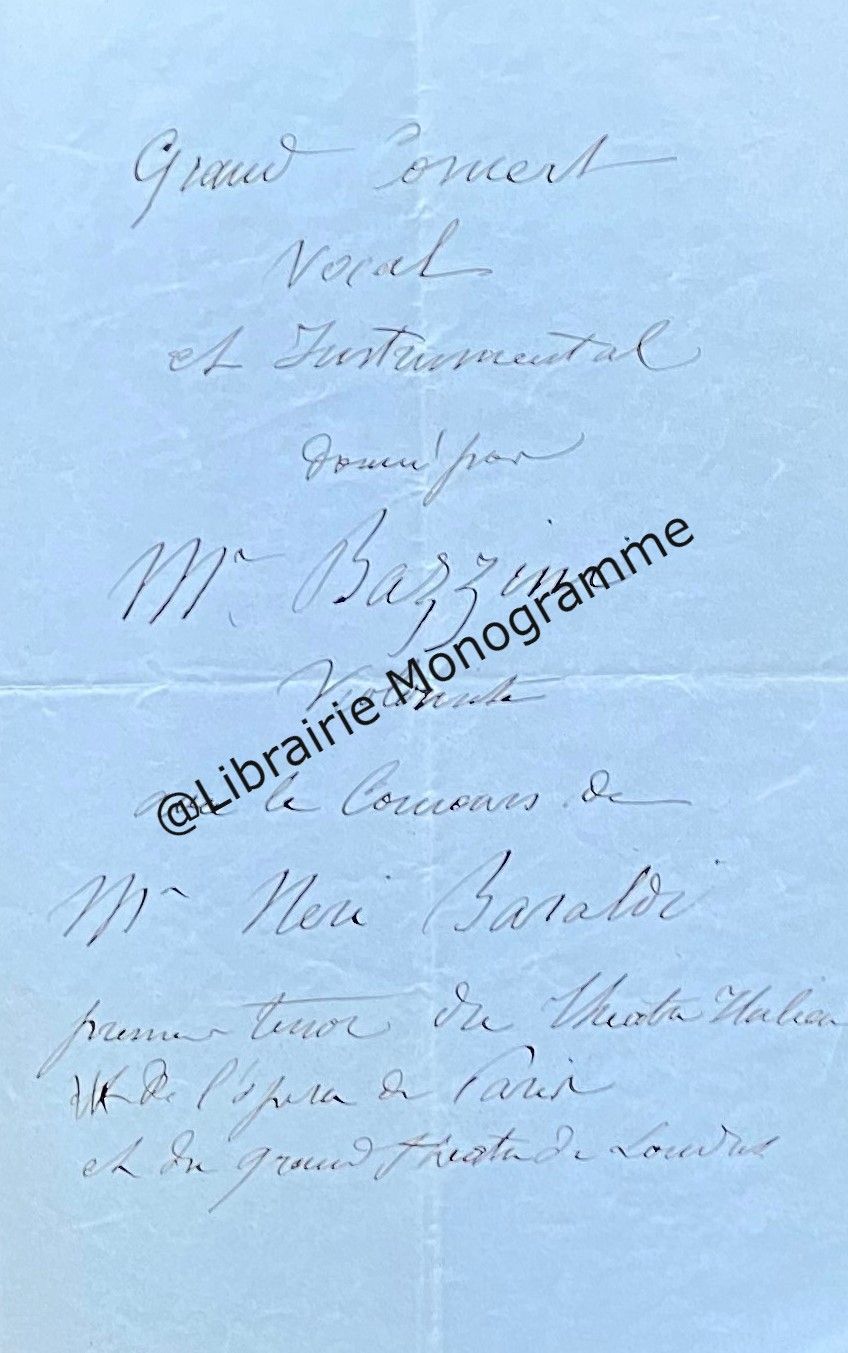 Grand Concert
Vocal
et Instrumental
donné par
Mr Bazzini
Violoniste
avec le Concours de
Mr Neri Baraldi
premier tenor du Théatre Italien
de l'opera de Paris
et du grand théatre de Londres
@Librairie Monogramme